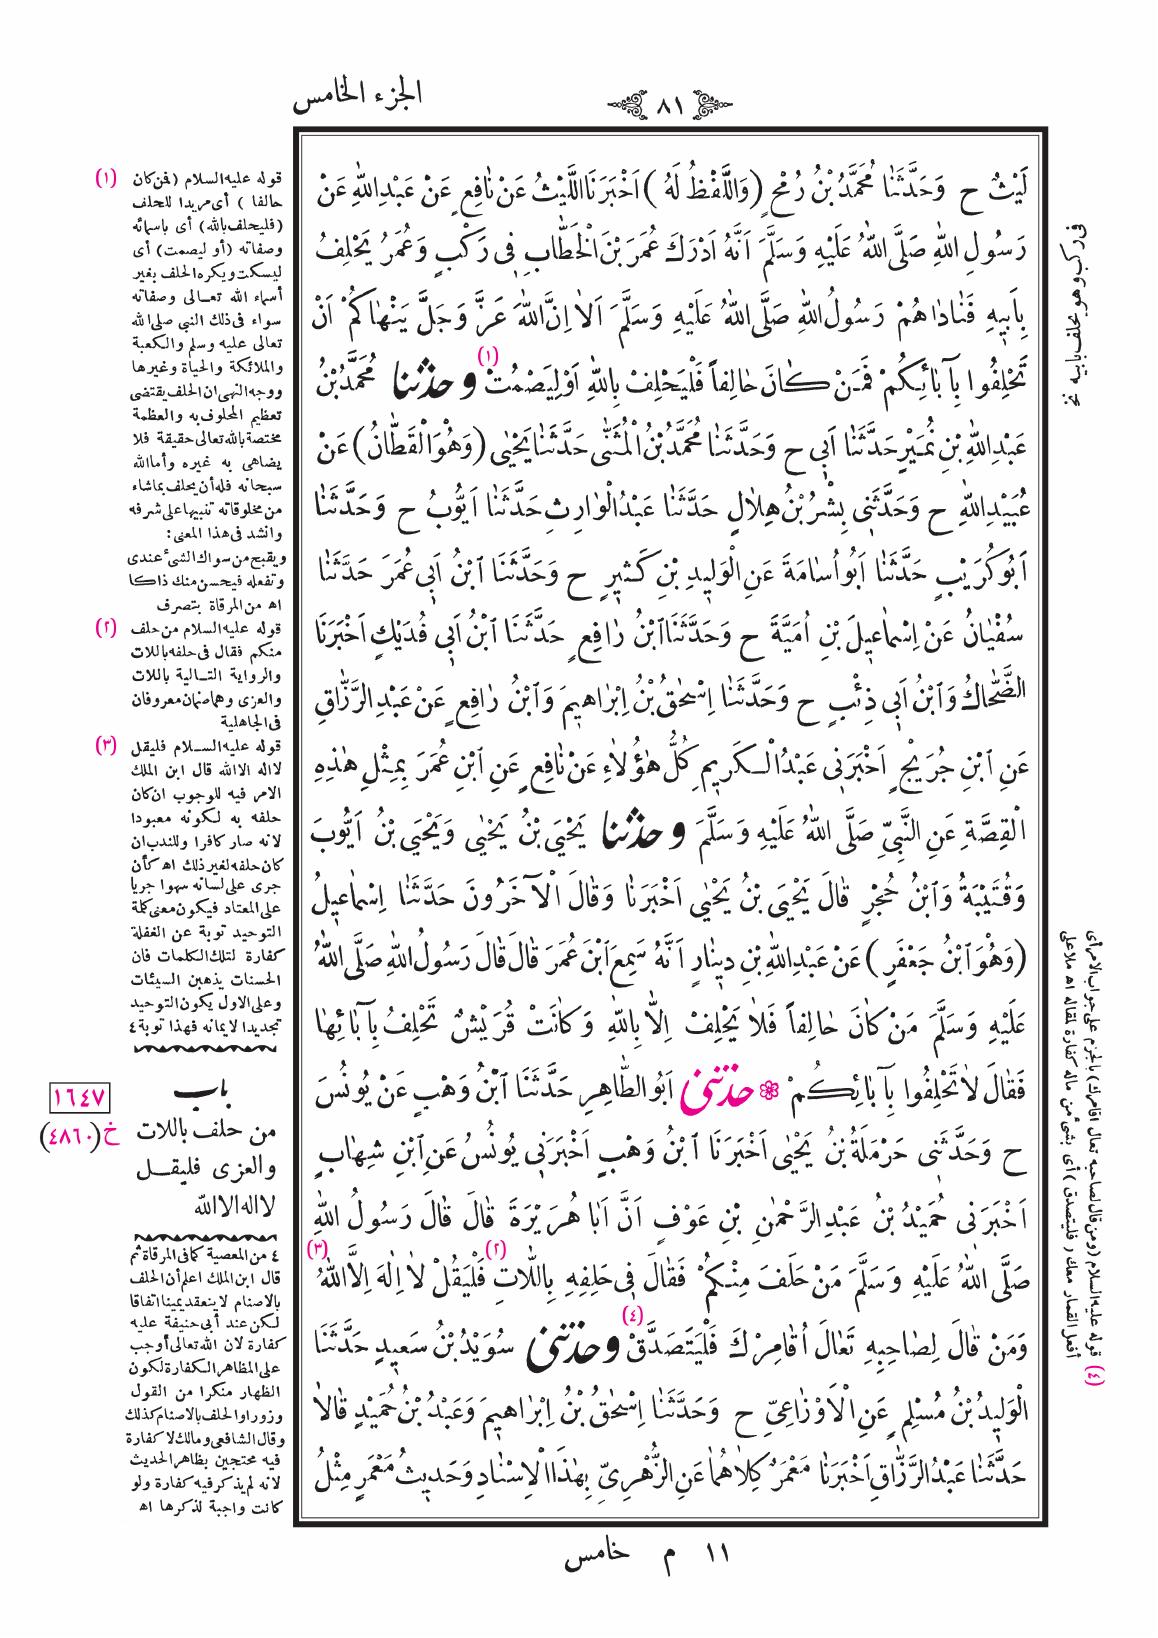 الجزء الخامس
٨١
لَيْثٌ ح وَحَدَّثَنَا مُحَمَّدُ بْنُ رُمْحٍ (وَاللَّفْظُ لَهُ) اَخْبَرَنَا اللَّيْثُ عَنْ نَافِعٍ عَنْ عَبْدِ اللهِ عَنْ
رَسُولِ اللهِ صَلَّى اللهُ عَلَيْهِ وَسَلَّمَ اَنَّهُ اَدْرَكَ عُمَرَ بْنَ الْخَطَّابِ فِى رَكْبٍ وَعُمَرُ يَحْلِفُ
بِاَبِيهِ فَنَادَاهُمْ رَسُولُ اللهِ صَلَّى اللهُ عَلَيْهِ وَسَلَّمَ اَلَا اِنَّ اللهَ عَزَّ وَجَلَّ يَنْهَاكُمْ اَنْ
تَحْلِفُوا بِآبَائِكُمْ فَمَنْ كَانَ حَالِفاً فَلْيَحْلِفْ بِاللهِ اَوْ لِيَصْمُتْ (١) وحدثنا مُحَمَّدُ بْنُ
عَبْدِ اللهِ بْنِ نُمَيْرٍ حَدَّثَنَا اَبِى ح وَحَدَّثَنَا مُحَمَّدُ بْنُ الْمُثَنَّى حَدَّثَنَا يَحْيَى (وَهُوَ الْقَطَّانُ) عَنْ
عُبَيْدِ اللهِ ح وَحَدَّثَنِى بِشْرُ بْنُ هِلَالٍ حَدَّثَنَا عَبْدُ الْوَارِثِ حَدَّثَنَا اَيُّوبُ ح وَحَدَّثَنَا
اَبُو كُرَيْبٍ حَدَّثَنَا اَبُو اُسَامَةَ عَنِ الْوَلِيدِ بْنِ كَثِيرٍ ح وَحَدَّثَنَا ابْنُ اَبِى عُمَرَ حَدَّثَنَا
سُفْيَانُ عَنْ اِسْمَاعِيلَ بْنِ اُمَيَّةَ ح وَحَدَّثَنَا ابْنُ رَافِعٍ حَدَّثَنَا ابْنُ اَبِى فُدَيْكٍ اَخْبَرَنَا
الضَّحَّاكُ وَابْنُ اَبِى ذِئْبٍ ح وَحَدَّثَنَا اِسْحٰقُ بْنُ اِبْرَاهِيمَ وَابْنُ رَافِعٍ عَنْ عَبْدِ الرَّزَّاقِ
عَنِ ابْنِ جُرَيْجٍ اَخْبَرَنِى عَبْدُ الْكَرِيمِ كُلُّ هٰؤُلَاءِ عَنْ نَافِعٍ عَنِ ابْنِ عُمَرَ بِمِثْلِ هٰذِهِ
الْقِصَّةِ عَنِ النَّبِىِّ صَلَّى اللهُ عَلَيْهِ وَسَلَّمَ وحدثنا يَحْيَى بْنُ يَحْيٰى وَيَحْيَى بْنُ اَيُّوبَ
وَقُتَيْبَةُ وَابْنُ حُجْرٍ قَالَ يَحْيَى بْنُ يَحْيٰى اَخْبَرَنَا وَقَالَ الْآخَرُونَ حَدَّثَنَا اِسْمَاعِيلُ
(وَهُوَ ابْنُ جَعْفَرٍ) عَنْ عَبْدِ اللهِ بْنِ دِينَارٍ اَنَّهُ سَمِعَ ابْنَ عُمَرَ قَالَ قَالَ رَسُولُ اللهِ صَلَّى اللهُ
عَلَيْهِ وَسَلَّمَ مَنْ كَانَ حَالِفاً فَلَا يَحْلِفْ اِلَّا بِاللهِ وَكَانَتْ قُرَيْشٌ تَحْلِفُ بِآبَائِهَا
فَقَالَ لَا تَحْلِفُوا بِآبَائِكُمْ ❁ حدثنى اَبُو الطَّاهِرِ حَدَّثَنَا ابْنُ وَهْبٍ عَنْ يُونُسَ
ح وَحَدَّثَنِى حَرْمَلَةُ بْنُ يَحْيٰى اَخْبَرَنَا ابْنُ وَهْبٍ اَخْبَرَنِى يُونُسُ عَنِ ابْنِ شِهَابٍ
اَخْبَرَنِى حُمَيْدُ بْنُ عَبْدِ الرَّحْمٰنِ بْنِ عَوْفٍ اَنَّ اَبَا هُرَيْرَةَ قَالَ قَالَ رَسُولُ اللهِ
صَلَّى اللهُ عَلَيْهِ وَسَلَّمَ مَنْ حَلَفَ مِنْكُمْ فَقَالَ فِى حَلِفِهِ بِاللَّاتِ (٢) فَلْيَقُلْ لَا اِلٰهَ اِلَّا اللهُ (٣)
وَمَنْ قَالَ لِصَاحِبِهِ تَعَالَ اُقَامِرْكَ فَلْيَتَصَدَّقْ (٤) وحدثنى سُوَيْدُ بْنُ سَعِيدٍ حَدَّثَنَا
الْوَلِيدُ بْنُ مُسْلِمٍ عَنِ الْاَوْزَاعِىِّ ح وَحَدَّثَنَا اِسْحٰقُ بْنُ اِبْرَاهِيمَ وَعَبْدُ بْنُ حُمَيْدٍ قَالَا
حَدَّثَنَا عَبْدُ الرَّزَّاقِ اَخْبَرَنَا مَعْمَرٌ كِلَاهُمَا عَنِ الزُّهْرِىِّ بِهٰذَا الْاِسْنَادِ وَحَدِيثُ مَعْمَرٍ مِثْلُ
١١ م خامس
فى ركب وهو يحلف بابيه نخ
(٤) قوله عليه السلام (ومن قال لصاحبه تعال اقامرك) بالجزم على جواب الامر أى
أفعل القمار معك (فليتصدق) أى بشىء من ماله كفارة لمقاله اه ملا على
(١) قوله عليه السلام (فمن كان
حالفا) أى مريدا للحلف
(فليحلف بالله) أى باسمائه
وصفاته (أو ليصمت) أى
ليسكت ويكره الحلف بغير
أسماء الله تعالى وصفاته
سواء فى ذلك النبى صلى الله
تعالى عليه وسلم والكعبة
والملائكة والحياة وغيرها
ووجه النهى ان الحلف يقتضى
تعظيم المحلوف به والعظمة
مختصة بالله تعالى حقيقة فلا
يضاهى به غيره وأما الله
سبحانه فله أن يحلف بما شاء
من مخلوقاته تنبيها على شرفه
وانشد فى هذا المعنى:
ويقبح من سواك الشىء عندى
وتفعله فيحسن منك ذاكا
اه من المرقاة بتصرف
(٢) قوله عليه السلام من حلف
منكم فقال فى حلفه باللات
والرواية التالية باللات
والعزى وهما صنمان معروفان
فى الجاهلية
(٣) قوله عليه السلام فليقل
لا اله الا الله قال ابن الملك
الامر فيه للوجوب ان كان
حلفه به لكونه معبودا
لانه صار كافرا وللندب ان
كان حلفه لغير ذلك اه كأن
جرى على لسانه سهوا جريا
على المعتاد فيكون معنى كلمة
التوحيد توبة عن الغفلة
كفارة لتلك الكلمات فان
الحسنات يذهبن السيئات
وعلى الاول يكون التوحيد
تجديدا لايمانه فهذا توبة ٤
باب
من حلف باللات
والعزى فليقل
لا اله الا الله
١٦٤٧
خ (٤٨٦٠)
٤ من المعصية كما فى المرقاة ثم
قال ابن الملك اعلم أن الحلف
بالاصنام لا ينعقد يمينا اتفاقا
لكن عند أبى حنيفة عليه
كفارة لان الله تعالى أوجب
على المظاهر الكفارة لكون
الظهار منكرا من القول
وزورا والحلف بالاصنام كذلك
وقال الشافعى ومالك لا كفارة
فيه محتجين بظاهر الحديث
لانه لم يذكر فيه كفارة ولو
كانت واجبة لذكرها اه